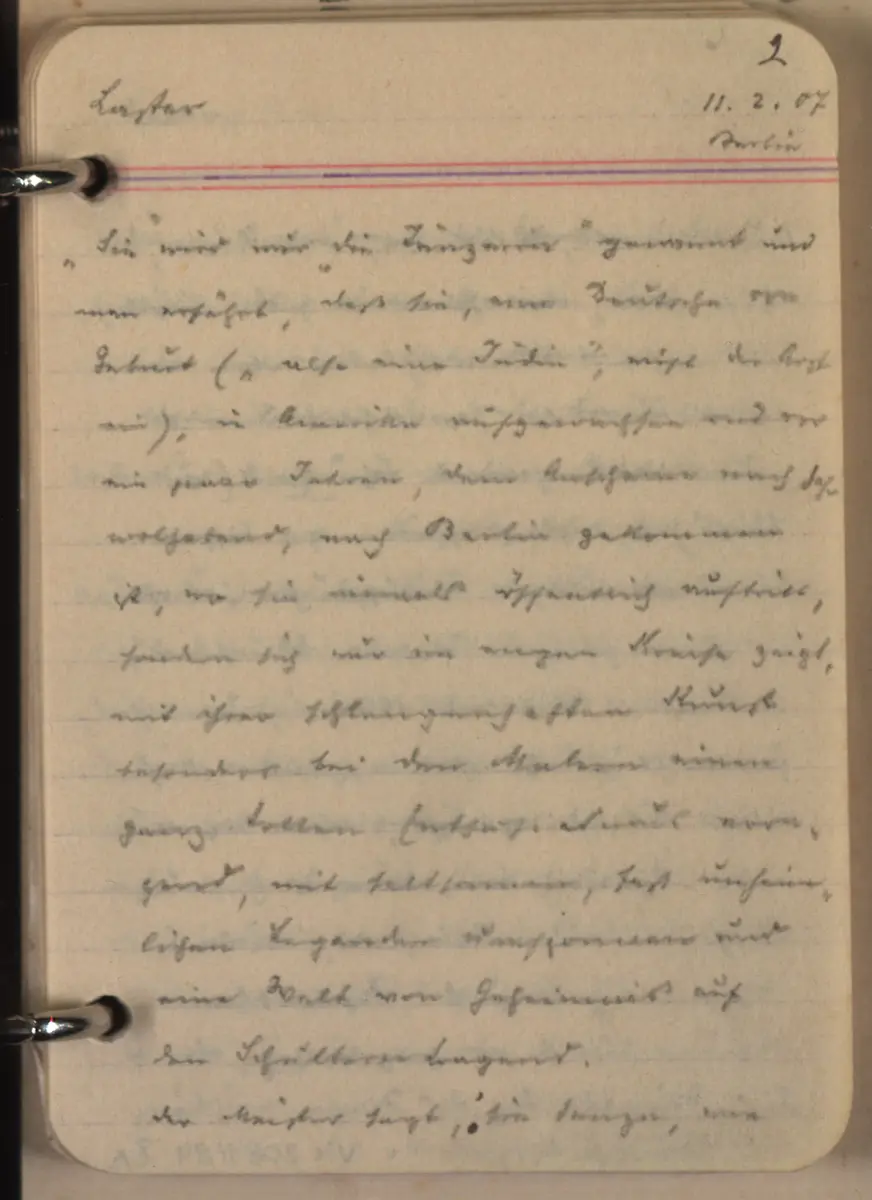 2
Laster 11. 2. 07
Berlin
„Sie" wird nur „die Tänzerin" genannt und
man erfährt, daß sie, eine Deutsche von
Geburt („also eine Jüdin", wirft der Arzt
ein), in Amerika aufgewachsen und vor
ein paar Jahren, dem Anscheine nach sehr
wolhabend, nach Berlin gekommen
ist, wo sie niemals öffentlich auftritt,
sondern sich nur im engen Kreise zeigt,
mit ihrer schlangenhaften Kunst
besonders bei den Malern einen
ganz tollen Enthusiasmus erre-
gend, mit seltsamen, fast unheim-
lichen Legenden umsponnen und
eine Welt von Geheimnis auf
den Schultern tragend.
Der Meister sagt, sie tanze, wie